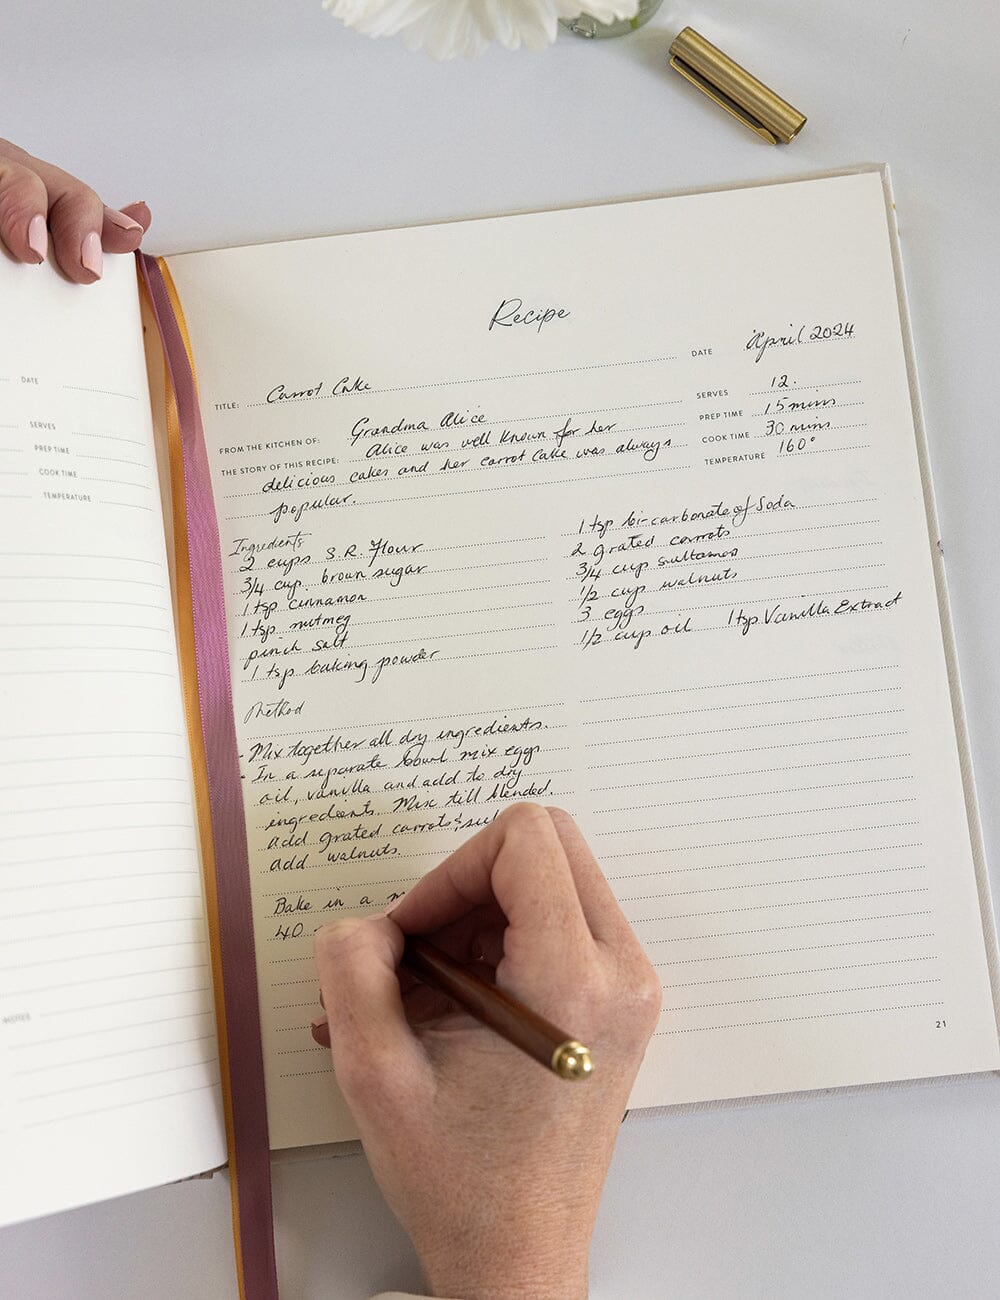 Recipe
DATE April 2024
TITLE: Carrot Cake
SERVES 12.
FROM THE KITCHEN OF: Grandma Alice
PREP TIME 15 mins
THE STORY OF THIS RECIPE: Alice was well known for her
COOK TIME 30 mins
delicious cakes and her carrot cake was always
TEMPERATURE 160°
popular.
Ingredients
2 cups S.R. Flour
3/4 cup brown sugar
1 tsp cinnamon
1 tsp nutmeg
pinch salt
1 tsp baking powder
1 tsp bi-carbonate of Soda
2 grated carrots
3/4 cup sultanas
1/2 cup walnuts
3 eggs
1/2 cup oil 1 tsp Vanilla Extract
Method
- Mix together all dry ingredients.
- In a separate bowl mix eggs
oil, vanilla and add to dry
ingredients. Mix till blended.
add grated carrots &
add walnuts.
Bake in a
40
21
DATE
SERVES
PREP TIME
COOK TIME
TEMPERATURE
NOTES